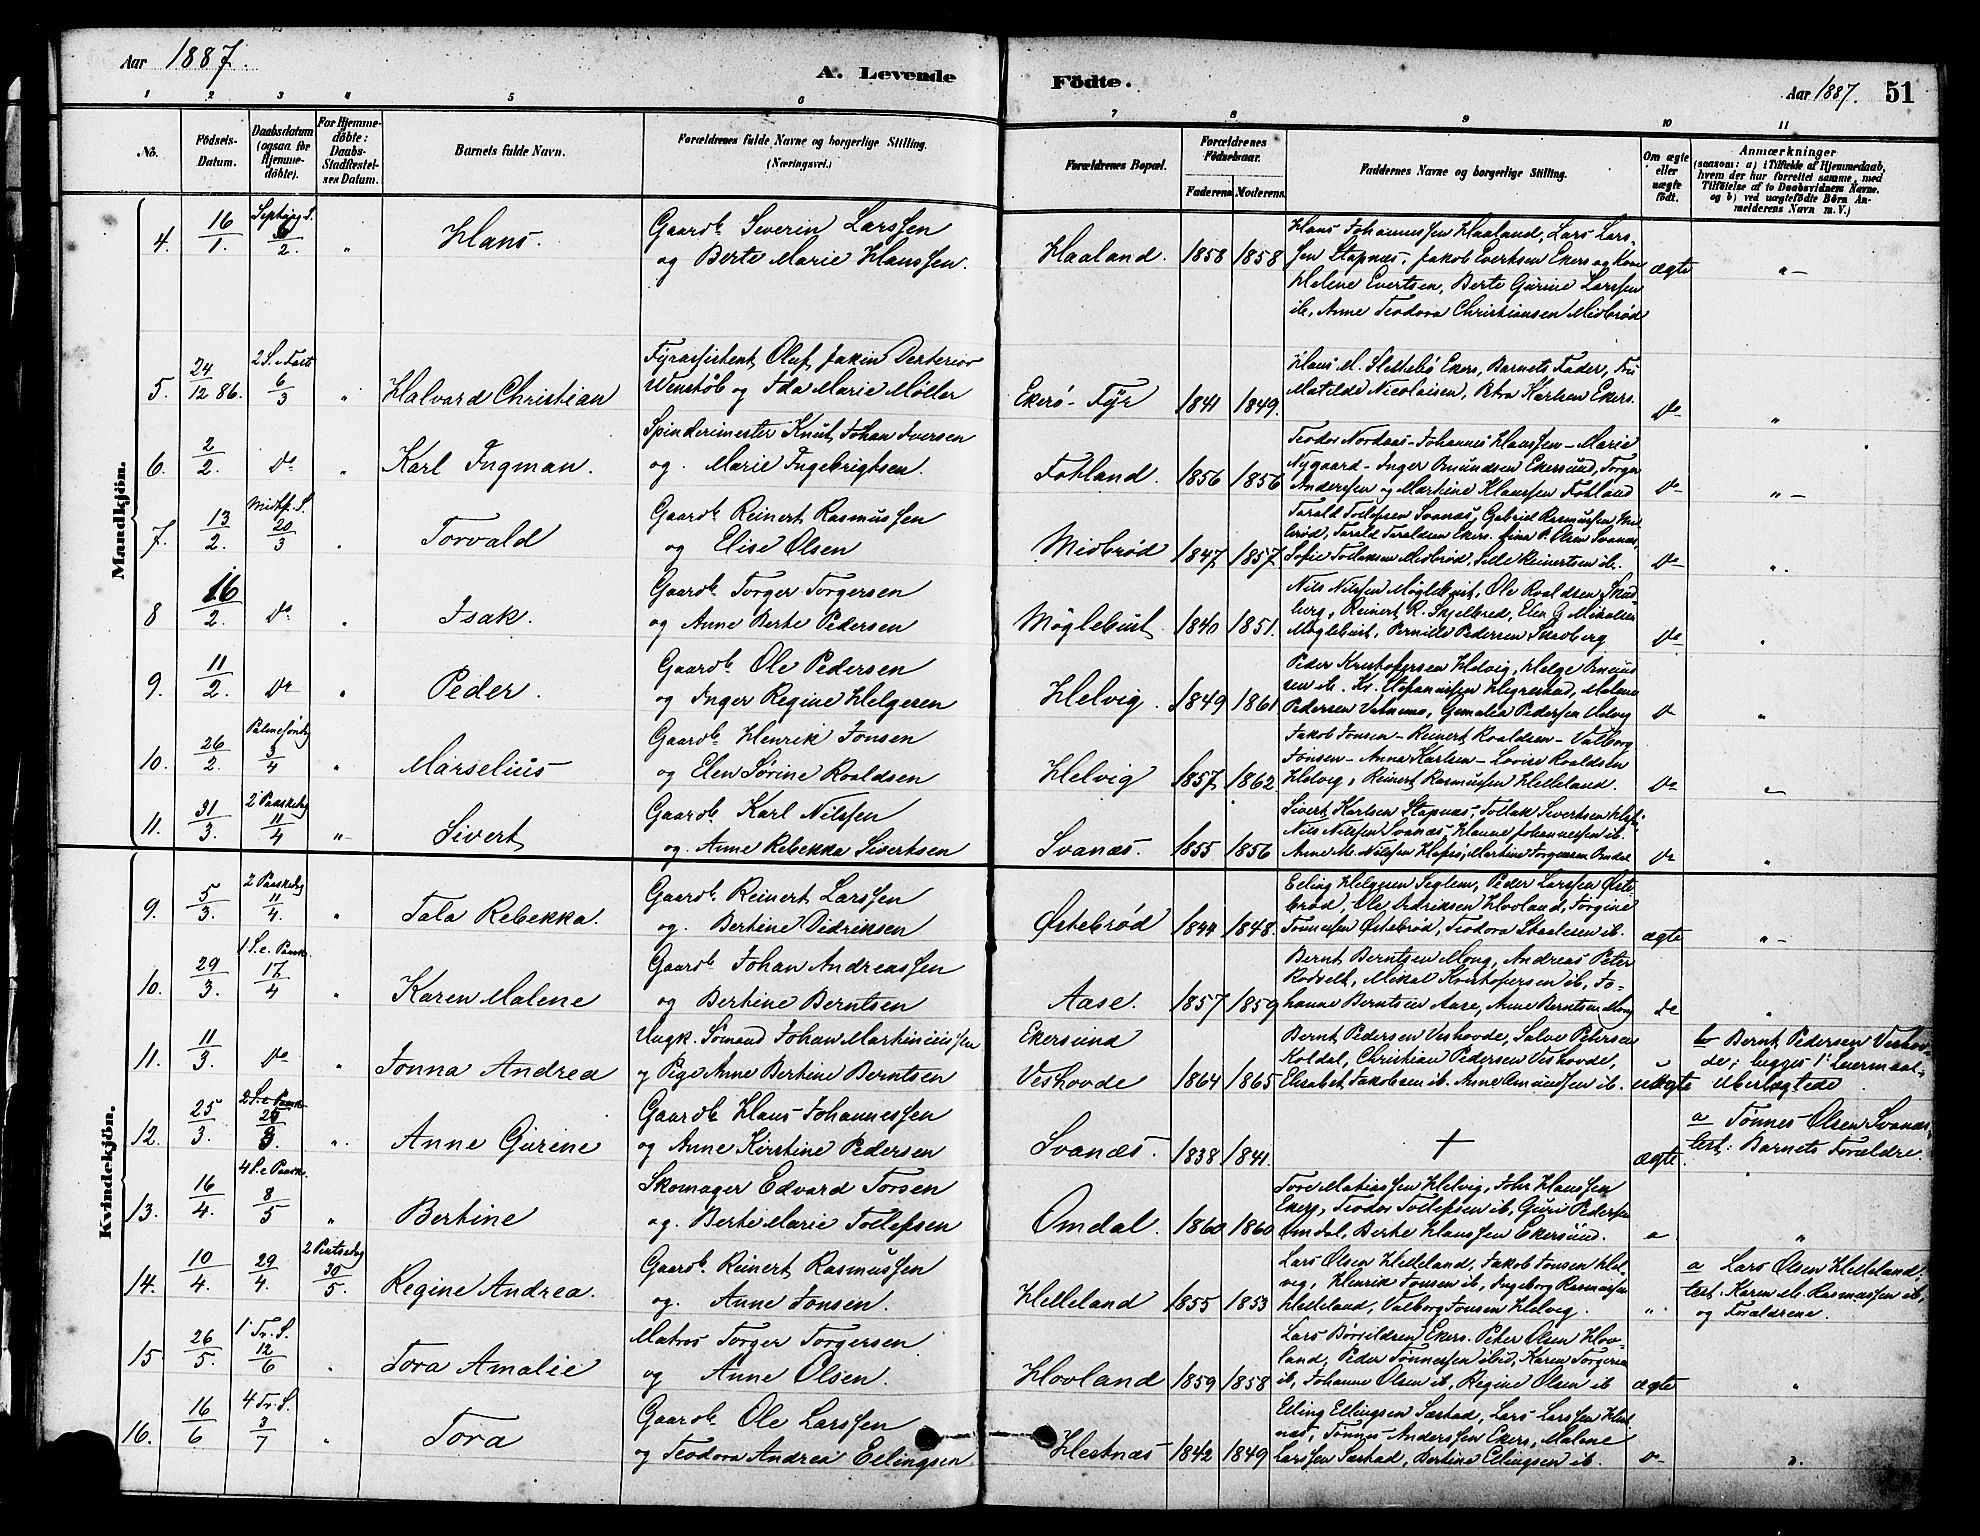 Aar 1887.
A. Levende
Födte.
Aar 1887. 51
1 2 3 4 5 6
7 8 9 10 11
No.
Födsels-Datum.
Daabsdatum (ogsaa for Hjemmedöbte).
For Hjemmedöbte: Daabs-Stadfæstelses Datum.
Barnets fulde Navn.
Forældrenes fulde Navne og borgerlige Stilling.
(Næringsvei.)
Forældrenes Bopæl.
Forældrenes Födselsaar.
Faderens. Moderens.
Faddernes Navne og borgerlige Stilling.
Om ægte eller uægte födt.
Anmærkninger
(saasom: a) i Tilfælde af Hjemmedaab,
hvem der har forrettet samme, med
Tilföielse af to Daabsvidners Navne,
og b) ved uægtefödte Börn Anmelderens Navn m. V.)
Mandkjön.
4. 16/1. 2. " Hans. Gaardb Severin Larssen
og Berte Marie Hanssen. Haaland. 1858 1858
Hans Johannessen Haaland, Lars Lars-
sen Stapnæs, Jakob Evertsen Ekerø
Helene Evertsen, Berte Gurine Larssen
ib, Anne Teodora Christiansen Midbrød
ægte "-
5. 24/12 86. 2 S. i Faste 6/3 " Halvard Christian Fyrassistent Oluf Jakin
Wenstøb og Ida Marie Møller Ekerø-Fyr 1841 1849.
Hans M. Slettebø Ekers, Barnets Fader, Fru
Matilde Nicolaisen, Petra Karlsen Ekers.
Do "
6. 2/2. Do " Karl Ingman. Spinderimester Knut Johan Iversen
og. Marie Ingebrigtsen. Fotland. 1856 1856
Teodor Nordaas-Johannes Hanssen-Marie
Nygaard-Inger Omundsen Ekersund, Torger
Anderssen og Martine Hanssen Fotland
Do "-
7. 13/2. Midtf. S. 20/3 " Torvald Gaardb Reinert Rasmussen
og Elise Olsen Midbrød 1847 1857
Tarald Tollefsen Svanæs, Gabriel Rasmussen Mid-
brød, Tarald Taraldsen Ekers. Olsen Svanæs,
Sofie Tollaksen Midbrød, Sille Reinertsen ib.
Do "
8 16/2. Do " Isak. Gaardb Torger Torgersen
og Anne Berte Pedersen Møglebust. 1840 1851.
Nils Nilsen Møglebust, Ole Roaldsen Skad-
berg, Reinert R. Skjelbred, Elen G Mikalsen
Møglebust, Pernille Pedersen Skadberg
Do "
9. 11/2. Do " Peder. Gaardb Ole Pedersen
og Inger Regine Helgesen Helvig. 1849 1861
Peder Kristofersen Helvig, Helge
sen ib. Kr. Stefanussen Hegrestad, Malene
Pedersen Vatnemo, Pedersen Helvig
Do "
10. 26/2. Palmesøndag 3/4 " Marselius Gaardb Henrik Jonsen
og Elen Sørine Roaldsen Helvig 1857 1862
Jakob Jonsen-Reinert Roaldsen-Valborg
Jonsen-Anna Karlsen-Lovise Roaldsen
Helvig, Reinert Rasmussen Helleland.
Do "
11. 31/3. 2 Paaskedag 11/4 " Sivert Gaardb Karl Nilssen
og. Anne Rebekka Sivertsen Svanæs. 1855 1856
Sivert Karlsen Stapnæs, Tollak Sivertsen
Nils Nilssen Svanæs, Hanne Johannessen ib.
Anne M. Nilssen Hafsø, Martine Torgersen Omdal
Do "
Kvindekjön.
9. 5/3. 2 Paaskedag 11/4. " Tala Rebekka. Gaardb Reinert Larssen
og. Bertine Didriksen Østebrød 1844 1848.
Elling Helgesen Seglem, Peder Larssen Øste-
brød, Ole Didriksen Hovland, Torgine
Tønnessen Østebrød, Teodora Skaalesen ib.
ægte "-
10. 29/3. 1 S. e. Paaske 17/4 " Karen Malene Gaardb Johan Andreassen
og Bertine Berntsen Aase. 1857 1859
Bernt Berntsen Mong, Andreas Peter
Rodvelt, Mikal Kristofersen ib, Jo-
hanne Berntsen Aase, Anne Berntsen Mong
Do "
11. 11/3. Do " Jonna Andrea Ungk. Sømand Johan Martiniussen
og Pige Anne Bertine Berntsen Ekersund
Veshovde 1864 1865
Bernt Pedersen Veshovde, Salve Petersen
Koldal, Christian Pedersen Veshovde,
Elisabet Jakobsen ib. Anne Amundssen ib.
uægte b Bernt Pedersen Veshov-
de; begges 1ste Leiermaal.
Ubeslægtede.
12. 25/3. 2 S. e. Paaske " Anne Gurine Gaardb Hans Johannessen
og Anne Kirstine Pedersen Svanæs. 1838 1841.
+
ægte. a Tønnes Olsen Svanæs.
test: Barnets Forældre.
13. 16/4. 4 S. e. Paaske 8/5 " Bertine Skomager Edvard Torsen
og. Berte Marie Tollefsen Omdal. 1860 1860
Tore Matiassen Helvig, Johs Hanssen
Ekers, Teodor Tollefsen ib, Guri Pedersen
Omdal, Berte Hanssen Ekersund.
" "
14. 10/4. 29/4. 2 Pintsedag 30/5. Regine Andrea. Gaardb. Reinert Rasmussen
og. Anne Jonsen. Helleland 1855 1853
Lars Olsen Helleland, Jakob Jonsen Hel-
vig, Henrik Jonsen ib, Ingeborg Rasmussen
Helleland, Valborg Jonsen Helvig.
" a Lars Olsen Helleland.
test. Karen M. Rasmussen ib,
og Forældrene.
15 26/5. 1 Tr. S. 12/6 " Tora Amalie Matros Torger Torgersen
og Anne Olsen. Hovland 1859 1858
Lars Ekers. Peter Olsen Hov-
land, Peder Tønnessen ibid, Karen Torgersen
ib, Johanne Olsen ib, Regine Olsen ib
ægte "
16. 16/6 4 Tr. S. 3/7 " Tora Gaardb Ole Larssen
og Teodora Andrea Ellingsen Hestnæs 1842 1849
Elling Ellingsen Sæstad, Lars Larssen Hest-
næs, Tønnes Anderssen Ekers, Malene
Larssen Sæstad, Bertine Ellingsen ib.
Do "